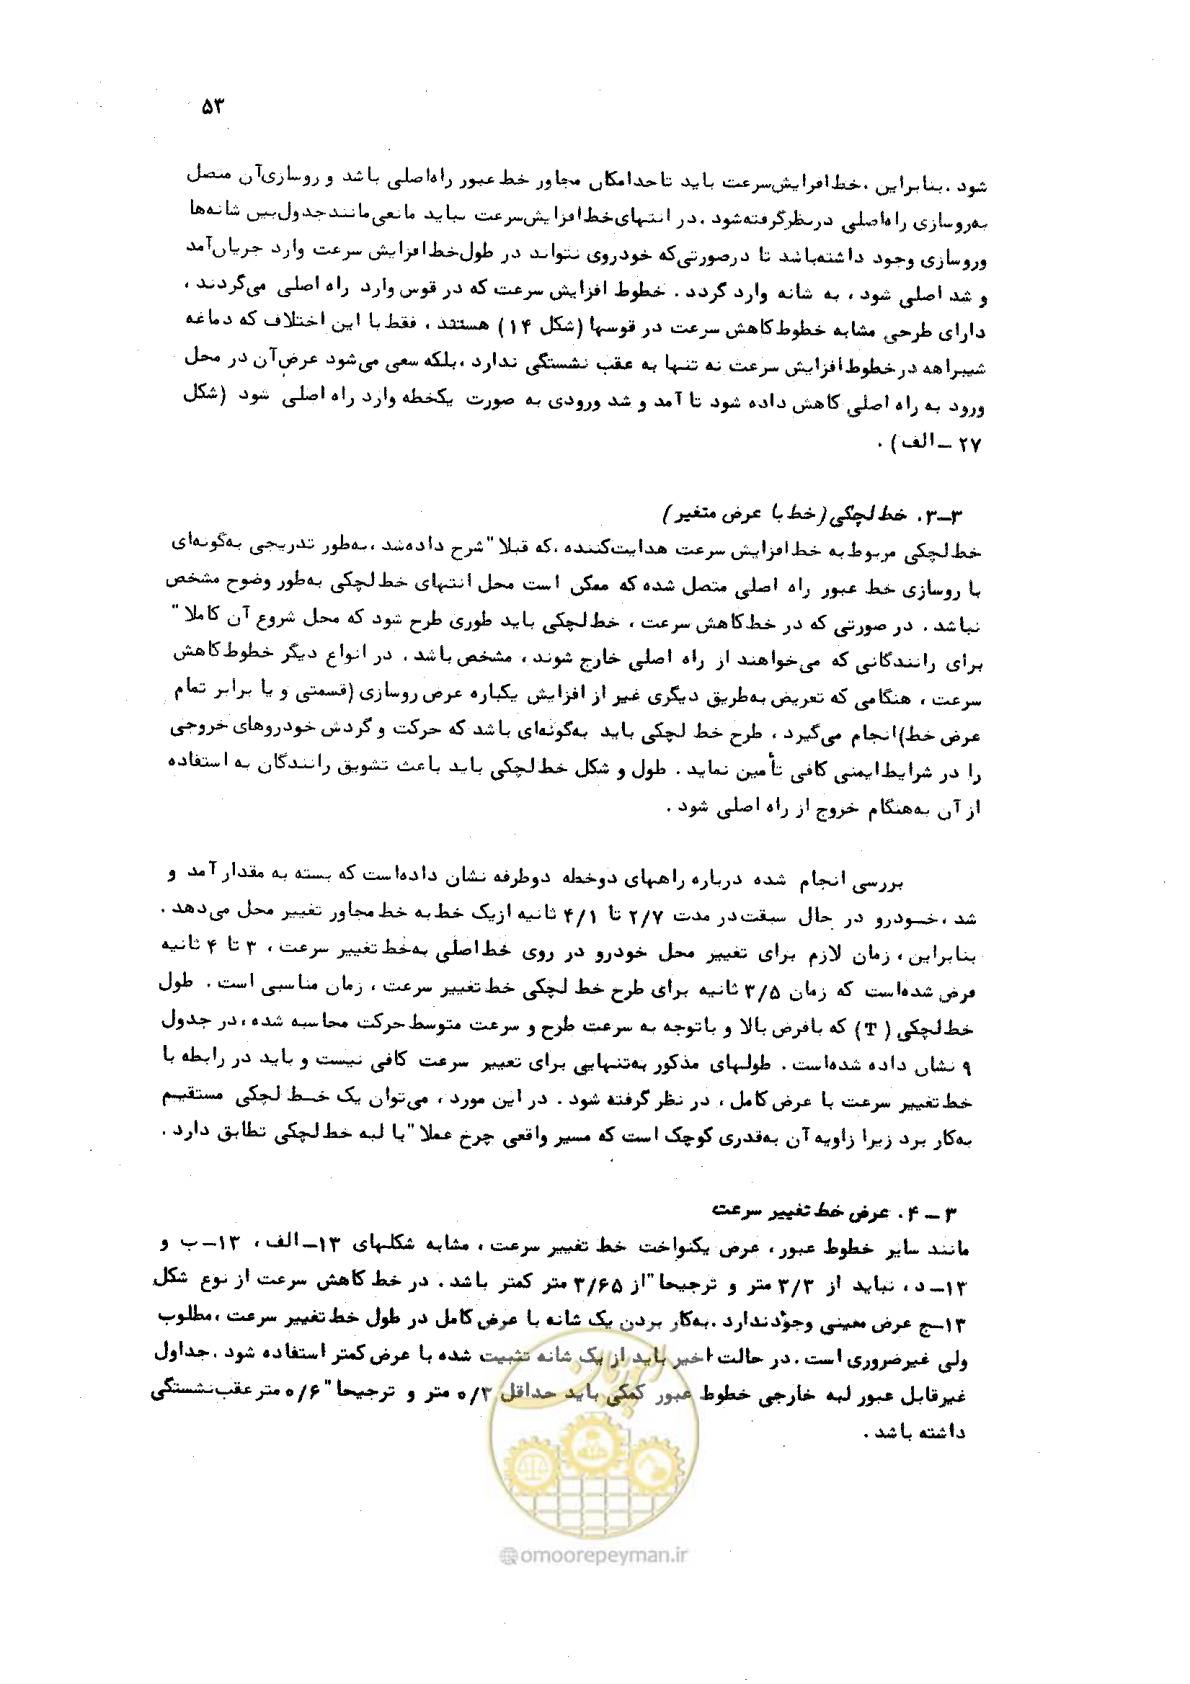 ۵۳
شود .بنابراین ،خط افزایش سرعت باید تا حد امکان مجاور خط عبور راه اصلی باشد و روسازی آن متصل
به روسازی راه اصلی در نظر گرفته شود .در انتهای خط افزایش سرعت نباید مانعی مانند جدول بین شانه ها
و روسازی وجود داشته باشد تا در صورتی که خودروی نتواند در طول خط افزایش سرعت وارد جریان آمد
و شد اصلی شود ، به شانه وارد گردد . خطوط افزایش سرعت که در قوس وارد راه اصلی می گردند ،
دارای طرحی مشابه خطوط کاهش سرعت در قوسها (شکل ۱۴) هستند ، فقط با این اختلاف که دماغه
شیبراهه در خطوط افزایش سرعت نه تنها به عقب نشستگی ندارد ،بلکه سعی می شود عرض آن در محل
ورود به راه اصلی کاهش داده شود تا آمد و شد ورودی به صورت یکخطه وارد راه اصلی شود (شکل
۲۷ ــ الف) .
۳ــ۳. خط لچکی (خط با عرض متغیر)
خط لچکی مربوط به خط افزایش سرعت هدایت کننده ،که قبلا" شرح داده شد ،به طور تدریجی به گونه ای
با روسازی خط عبور راه اصلی متصل شده که ممکن است محل انتهای خط لچکی به طور وضوح مشخص
نباشد . در صورتی که در خط کاهش سرعت ، خط لچکی باید طوری طرح شود که محل شروع آن کاملا"
برای رانندگانی که می خواهند از راه اصلی خارج شوند ، مشخص باشد . در انواع دیگر خطوط کاهش
سرعت ، هنگامی که تعریض به طریق دیگری غیر از افزایش یکباره عرض روسازی (قسمتی و یا برابر تمام
عرض خط) انجام می گیرد ، طرح خط لچکی باید به گونه ای باشد که حرکت و گردش خودروهای خروجی
را در شرایط ایمنی کافی تأمین نماید . طول و شکل خط لچکی باید باعث تشویق رانندگان به استفاده
از آن به هنگام خروج از راه اصلی شود .
بررسی انجام شده درباره راههای دوخطه دوطرفه نشان داده است که بسته به مقدار آمد و
شد ،خودرو در حال سبقت در مدت ۲/۷ تا ۴/۱ ثانیه از یک خط به خط مجاور تغییر محل می دهد .
بنابراین ، زمان لازم برای تغییر محل خودرو در روی خط اصلی به خط تغییر سرعت ، ۳ تا ۴ ثانیه
فرض شده است که زمان ۳/۵ ثانیه برای طرح خط لچکی خط تغییر سرعت ، زمان مناسبی است . طول
خط لچکی (T) که با فرض بالا و با توجه به سرعت طرح و سرعت متوسط حرکت محاسبه شده ،در جدول
۹ نشان داده شده است . طولهای مذکور به تنهایی برای تغییر سرعت کافی نیست و باید در رابطه با
خط تغییر سرعت با عرض کامل ، در نظر گرفته شود . در این مورد ، می توان یک خط لچکی مستقیم
به کار برد زیرا زاویه آن به قدری کوچک است که مسیر واقعی چرخ عملا" با لبه خط لچکی تطابق دارد .
۳ ــ ۴. عرض خط تغییر سرعت
مانند سایر خطوط عبور ، عرض یکنواخت خط تغییر سرعت ، مشابه شکلهای ۱۳ــ الف ، ۱۳ــ ب و
۱۳ــ د ، نباید از ۳/۳ متر و ترجیحا" از ۳/۶۵ متر کمتر باشد . در خط کاهش سرعت از نوع شکل
۱۳ــج عرض معینی وجود ندارد .به کار بردن یک شانه با عرض کامل در طول خط تغییر سرعت ،مطلوب
ولی غیرضروری است .در حالت اخیر باید از یک شانه تثبیت شده با عرض کمتر استفاده شود .جداول
غیرقابل عبور لبه خارجی خطوط عبور کمکی باید حداقل ۰/۳ متر و ترجیحا" ۰/۶ متر عقب نشستگی
داشته باشد .
امور پیمان
@omoorepeyman.ir